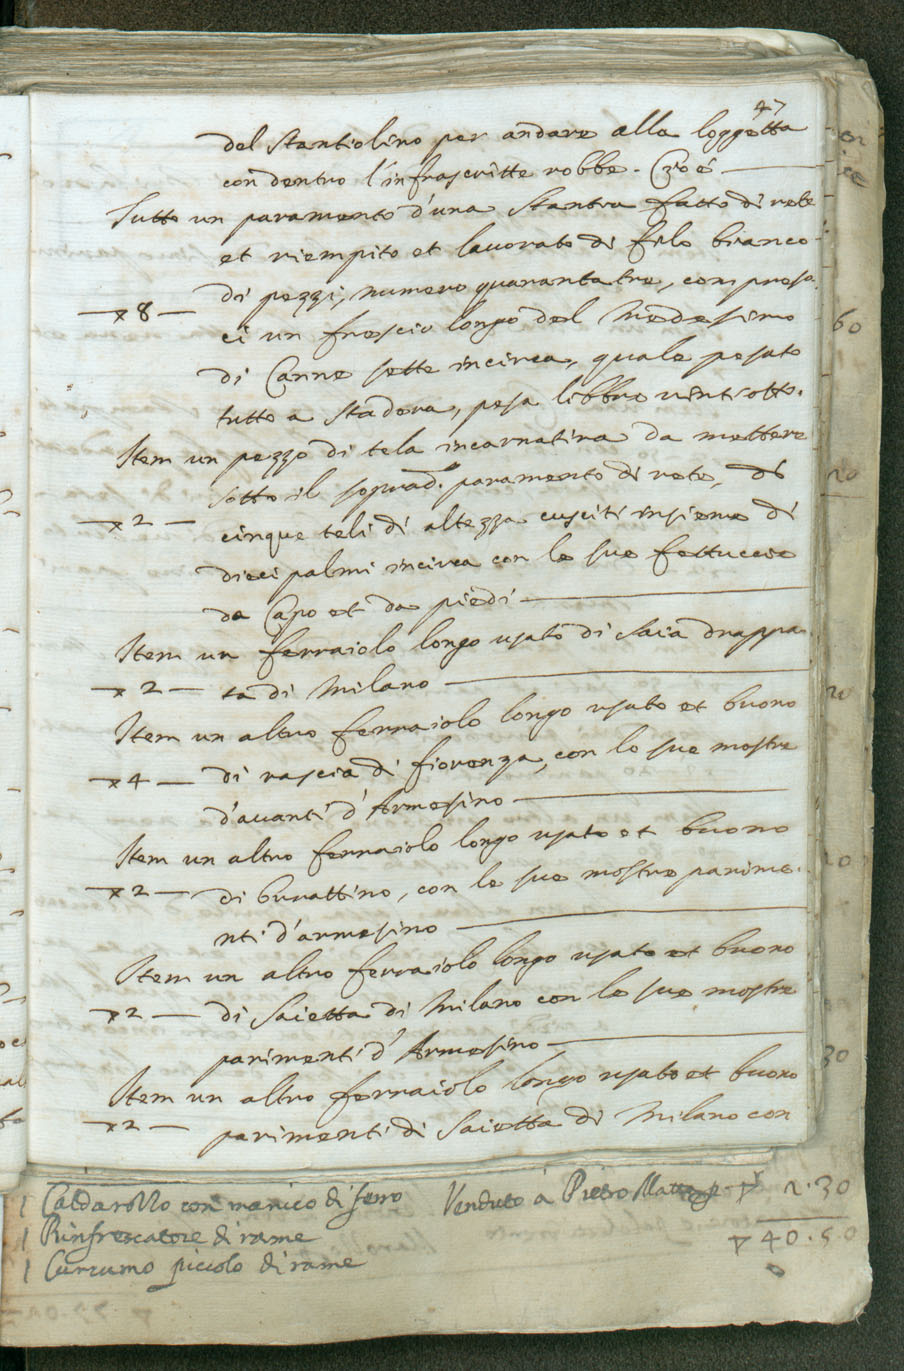 47
del stantiolino per andare alla loggetta
con dentro l'infrascritte robbe. Cioè
Tutto un paramento d'una stantia fatto di rete
et riempito et lavorato di filo bianco
di pezzi, numero quarantatre, compreso
8
ci un frescio longo del medesimo
di Canne sette incirca, quale pesato
tutto a stadera, pesa libbre vintiotto.
Item un pezzo di tela incarnatina da mettere
sotto il soprad. paramento di rete, di
2
cinque teli di altezza cusciti insieme di
dieci palmi incirca con le sue fettuccie
da Capo et da piedi
Item un ferraiolo longo usato di saia drappa
2
ta di Milano
Item un altro ferraiolo longo usato et buono
4
di rascia di fiorenza, con le sue mostre
d'avanti d'Armesino
Item un altro ferraiolo longo usato et buono
2
di burattino, con le sue mostre parime
nti d'armesino
Item un altro ferraiolo longo usato et buono
2
di saietta di Milano con le sue mostre
parimenti d'Armesino
Item un altro ferraiolo longo usato et buono
2
parimenti di saietta di Milano con
1 Caldarozzo con manico di ferro Venduto à Pietro 2.30
1 Rinfrescatore di rame
40.50
1 Cucumo piccolo di rame
60
20
20
20
30